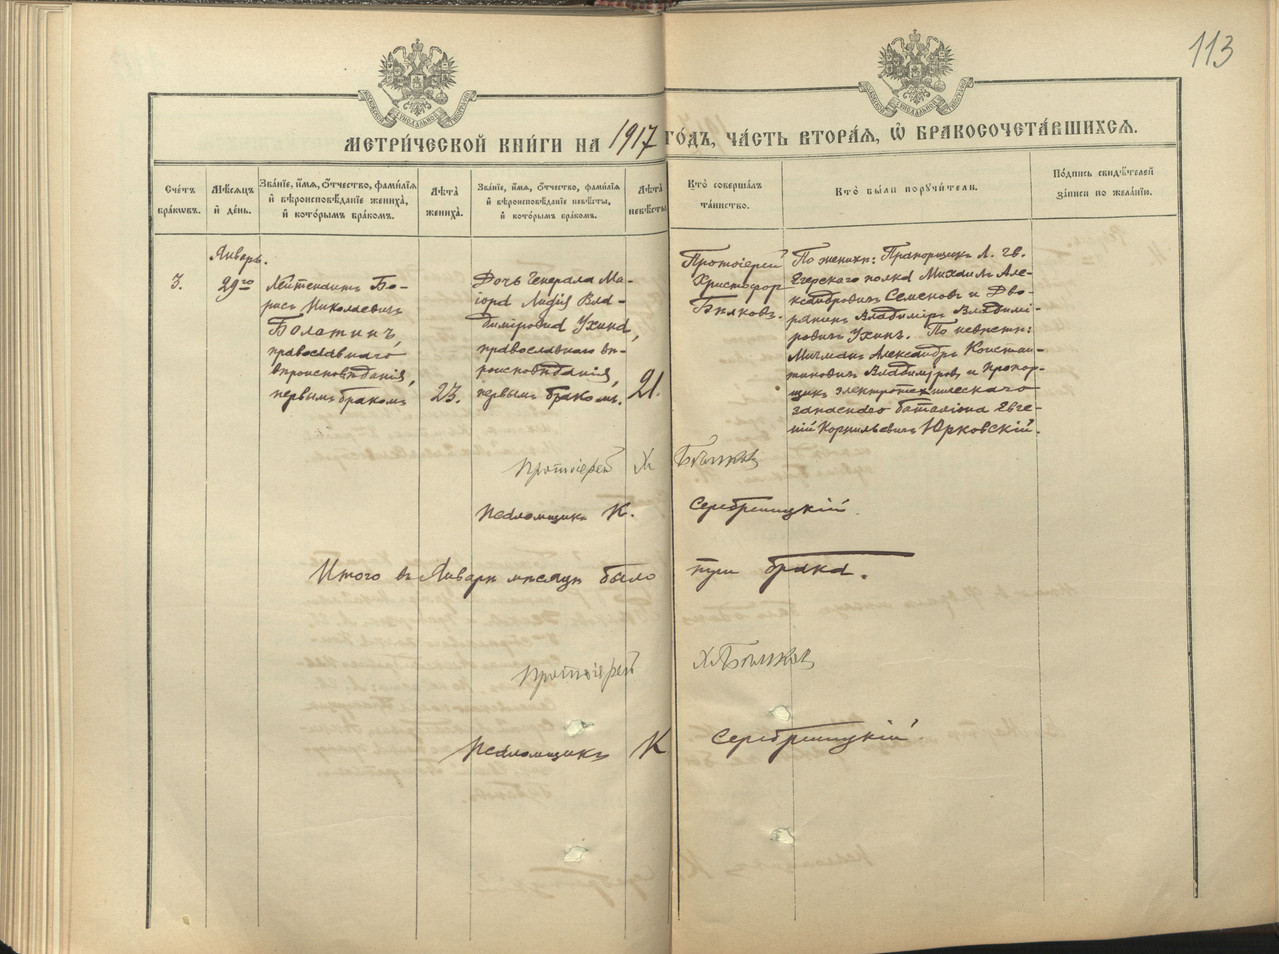 113
МЕТРИ́ЧЕСКОЙ КНИ́ГИ НА 1917 ГО́ДЪ, ЧА́СТЬ ВТОРА́Я, Ѡ БРАКОСОЧЕТА́ВШИХСѦ.
Сче́тъ
бра́кѡвъ.
Мѣ́сяцъ
и҆ де́нь.
Зва́нїе, и҆́мѧ, ѻ҆́тчество, фами́лїѧ
и҆ вѣроисповѣ́данїе жениха̀,
и҆ кото́рымъ бра́комъ.
Лѣ̑та
жениха̀.
Зва́нїе, и҆́мѧ, ѻ҆́тчество, фами́лїѧ
и҆ вѣроисповѣ́данїе невѣ́сты,
и҆ кото́рымъ бра́комъ.
Лѣ̑та
невѣ́сты
Кто̀ соверша́лъ
та́инство.
Кто̀ бы́ли пору́чители.
По́дпись свидѣ́телей
за́писи по жела́нїю.
3.
Январь.
29го
Лейтенантъ Бо-
рисъ Николаевичъ
Болатинъ,
православнаго
вѣроисповѣданія,
первымъ бракомъ
23.
Дочь Генерала Ма-
іора Лидія Вла-
диміровна Ухина,
православнаго вѣ-
роисповѣданія,
первымъ бракомъ.
21.
Протоіерей
Христофор
Бѣляковъ.
По женихѣ: Прапорщикъ Л. Гв.
Егерскаго полка Михаилъ Але-
ксандровичъ Семеновъ и Дво-
рянинъ Владиміръ Владимі-
ровичъ Ухинъ. По невѣстѣ:
Мичманъ Александръ Констан-
тиновичъ Владиміровъ и прапор-
щикъ электротехническаго
запаснаго баталіона Евге-
ній Корнильевичъ Юрковскій.
Протоіерей Х. Бѣляковъ
Псаломщикъ К. Серебреницкій.
Итого въ Январѣ мѣсяцѣ было три брака.
Протоіерей Х. Бѣляковъ
Псаломщикъ К Серебреницкій.